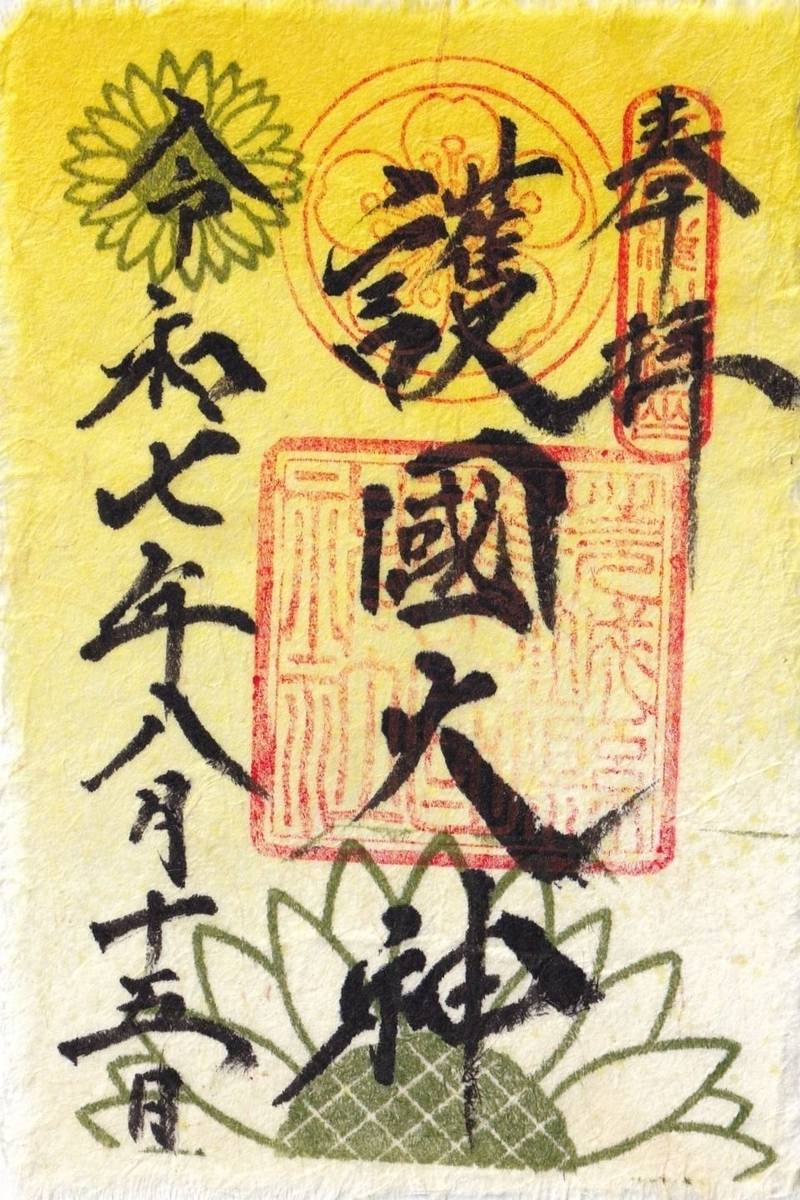 奉拝
護國大神
令和七年八月十五日